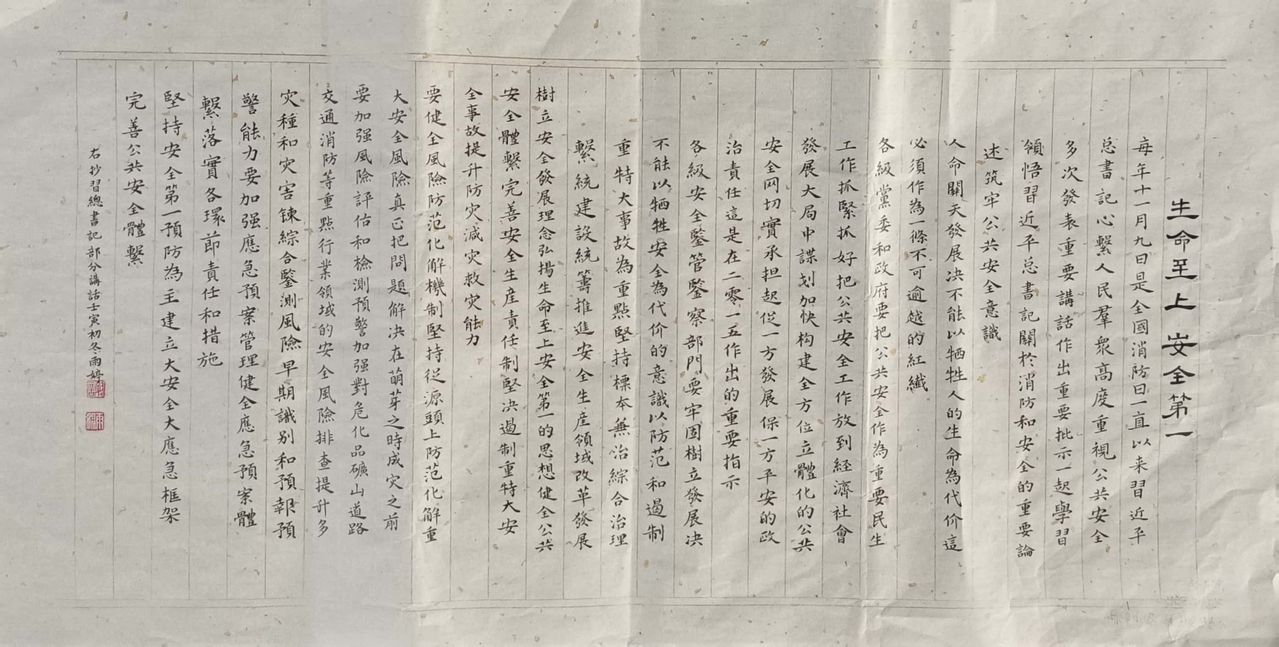 生命至上 安全第一
每年十一月九日是全國消防日一直以来習近平
总書記心繫人民羣衆高度重視公共安全
多次發表重要講話作出重要批示一起學習
領悟習近平总書記關於消防和安全的重要論
述筑牢公共安全意識
人命關天發展决不能以牺牲人的生命為代价這
必須作為一條不可逾越的紅綫
各級黨委和政府要把公共安全作為重要民生
工作抓緊抓好把公共安全工作放到经濟社會
發展大局中謀划加快构建全方位立體化的公共
安全网切實承担起促一方發展保一方平安的政
治責任這是在二零一五作出的重要指示
各級安全鑒管鑒察部門要牢固樹立發展决
不能以牺牲安全為代价的意識以防范和遏制
重特大事故為重點堅持標本兼治綜合治理
繫統建設統籌推進安全生産領域改革發展
樹立安全發展理念弘揚生命至上安全第一的思想健全公共
安全體繫完善安全生産責任制堅决遏制重特大安
全事故提升防灾減灾救灾能力
要健全風險防范化解機制堅持従源頭上防范化解重
大安全風險真正把問題解决在萌芽之時成灾之前
要加强風險評估和檢測預警加强對危化品礦山道路
交通消防等重點行業領域的安全風險排查提升多
灾種和灾害鍊綜合鑒測風險早期識别和預報預
警能力要加强應急預案管理健全應急預案體
繫落實各環節責任和措施
堅持安全第一預防為主建立大安全大應急框架
完善公共安全體繫
右抄習總書記部分講話壬寅初冬雨婷